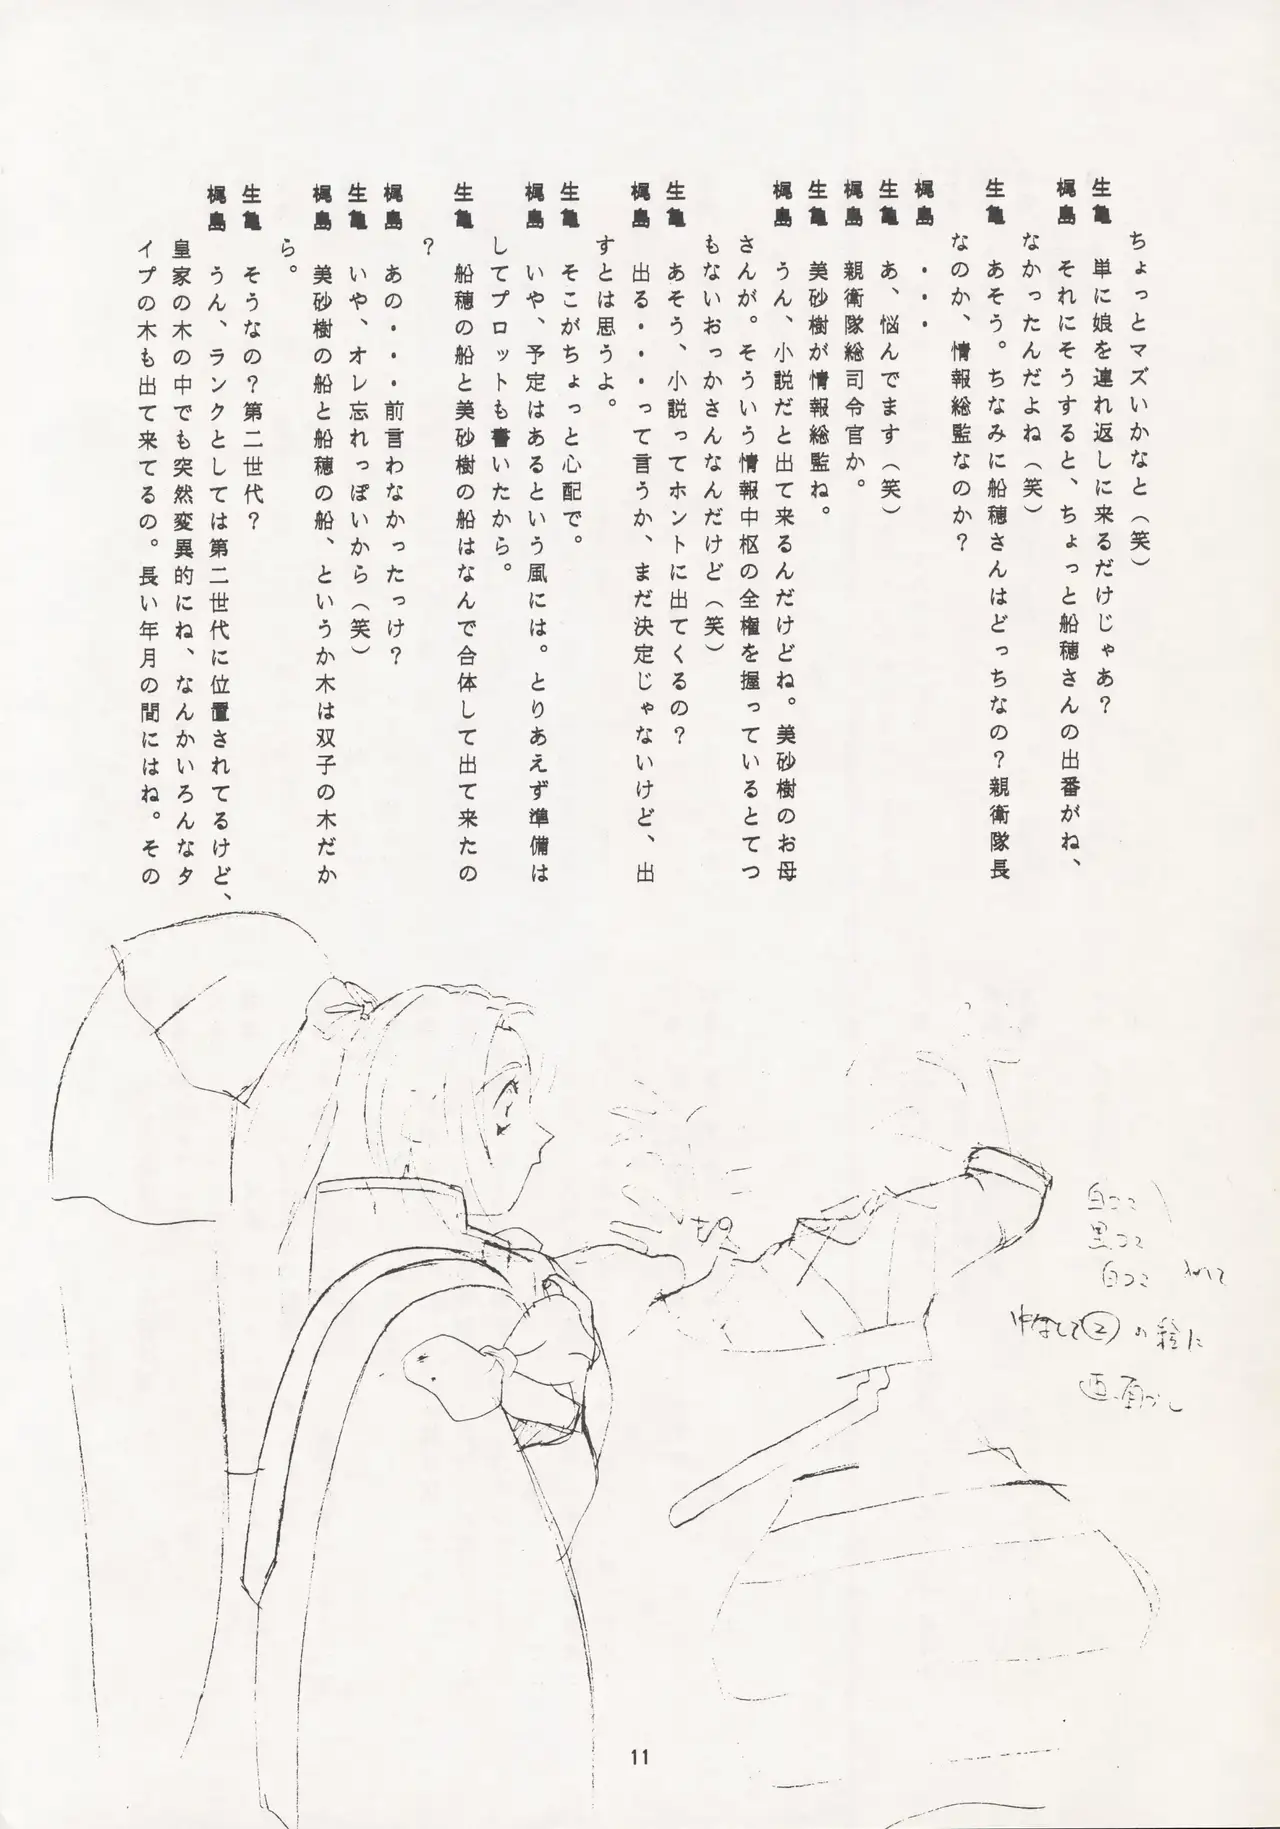 ちょっとマズいかなと（笑）
生亀　単に娘を連れ返しに来るだけじゃあ？
梶島　それにそうすると、ちょっと船穂さんの出番がね、
なかったんだよね（笑）
生亀　あそう。ちなみに船穂さんはどっちなの？親衛隊長
なのか、情報総監なのか？
梶島　・・・
生亀　あ、悩んでます（笑）
梶島　親衛隊総司令官か。
生亀　美砂樹が情報総監ね。
梶島　うん、小説だと出て来るんだけどね。美砂樹のお母
さんが。そういう情報中枢の全権を握っているとてつ
もないおっかさんなんだけど（笑）
生亀　あそう、小説ってホントに出てくるの？
梶島　出る・・・って言うか、まだ決定じゃないけど、出
すとは思うよ。
生亀　そこがちょっと心配で。
梶島　いや、予定はあるという風には。とりあえず準備は
してプロットも書いたから。
生亀　船穂の船と美砂樹の船はなんで合体して出て来たの
？
梶島　あの・・・前言わなかったっけ？
生亀　いや、オレ忘れっぽいから（笑）
梶島　美砂樹の船と船穂の船、というか木は双子の木だか
ら。
生亀　そうなの？第二世代？
梶島　うん、ランクとしては第二世代に位置されてるけど、
皇家の木の中でも突然変異的にね、なんかいろんなタ
イプの木も出て来てるの。長い年月の間にはね。その
白コマ
黒コマ
白コマ
②の絵に
画面
11